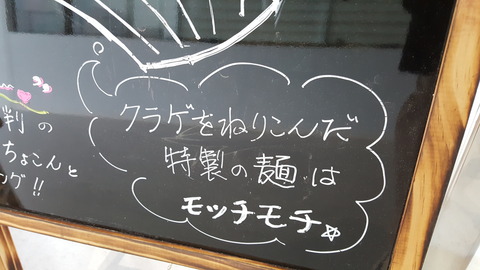 クラゲをねりこんだ
特製の麺は
モッチモチ☆
判の
ちょこんと
ゲ!!